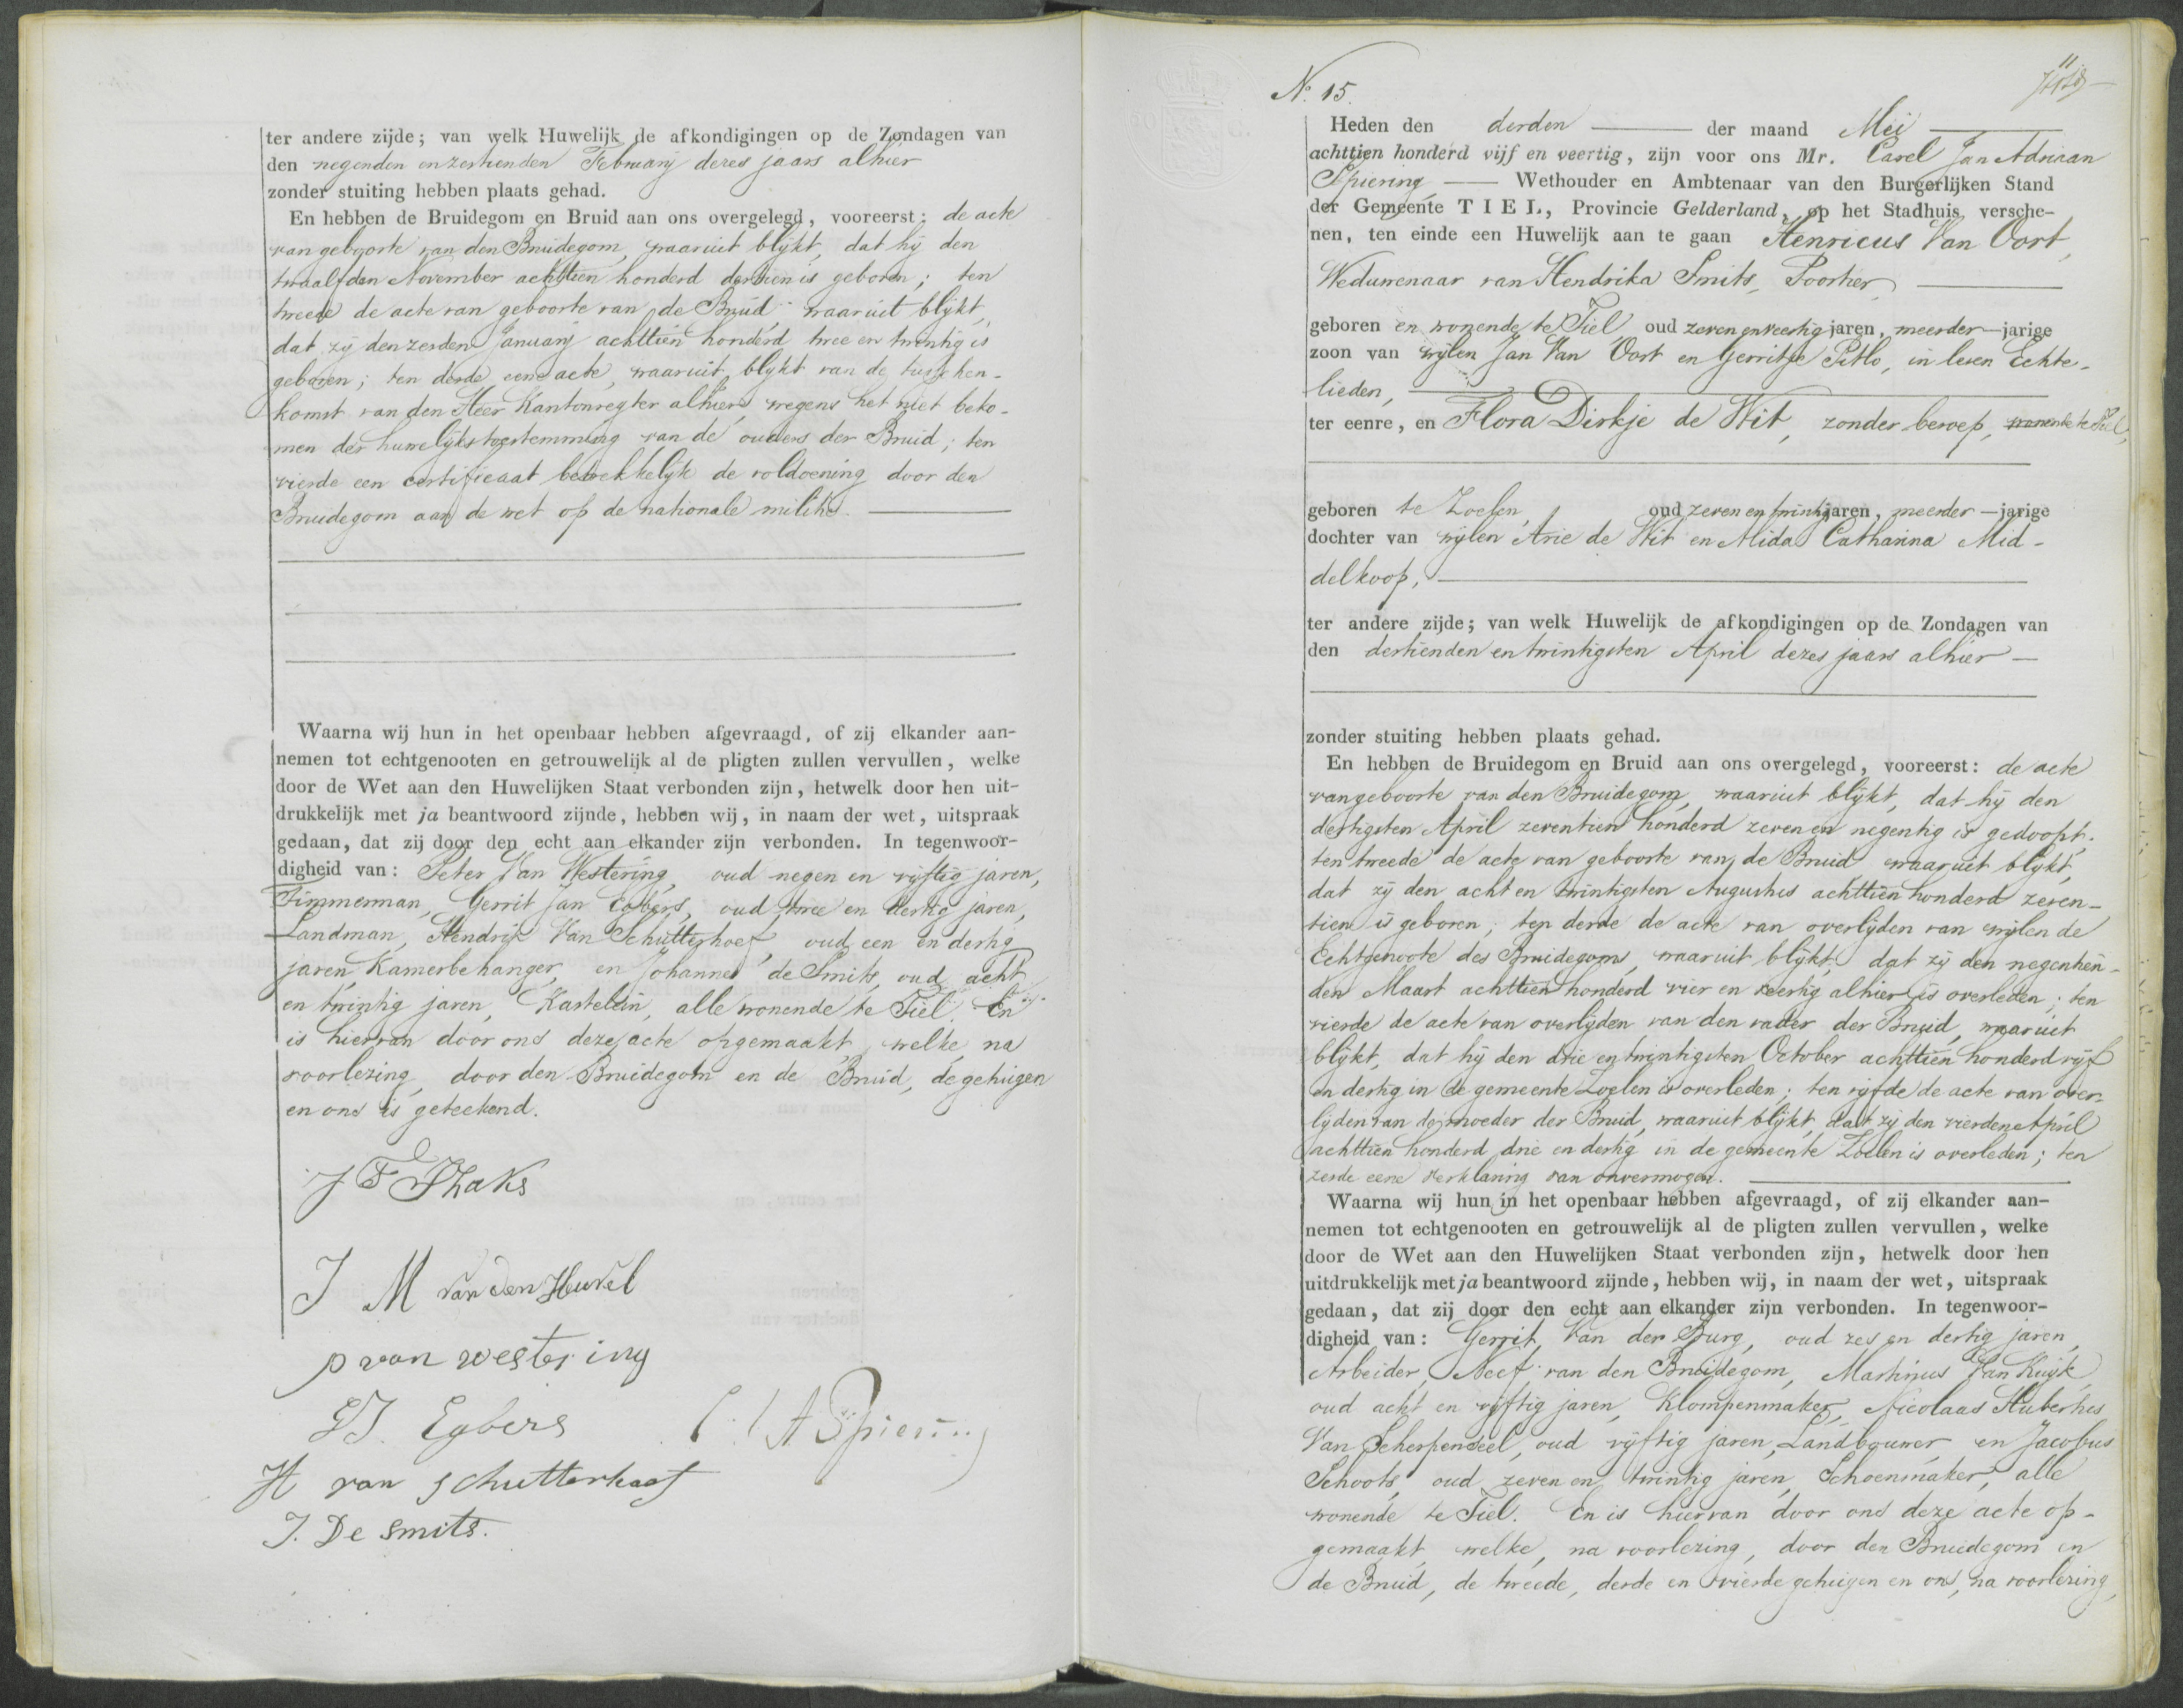 ter andere zijde; van welk Huwelijk de afkondigingen op de Zondagen van
den negenden en zestienden Februarij dezes jaars alhier
zonder stuiting hebben plaats gehad.
En hebben de Bruidegom en Bruid aan ons overgelegd, vooreerst: de acte
van geboorte van den Bruidegom, waaruit blijkt, dat hij den
twaalfden November achttien honderd dertien is geboren; ten
tweede de acte van geboorte van de Bruid waaruit blijkt,
dat zij den zesden Januarij achttien honderd twee en twintig is
geboren; ten derde eene acte, waaruit blijkt van de tusschen-
komst van den Heer Kantonregter alhier, wegens het niet beko-
men der huwelijkstoestemming van de ouders der Bruid; ten
vierde een certificaat betrekkelijk de voldoening door den
Bruidegom aan de wet op de nationale militie.
Waarna wij hun in het openbaar hebben afgevraagd, of zij elkander aan-
nemen tot echtgenooten en getrouwelijk al de pligten zullen vervullen, welke
door de Wet aan den Huwelijken Staat verbonden zijn, hetwelk door hen uit-
drukkelijk met ja beantwoord zijnde, hebben wij, in naam der wet, uitspraak
gedaan, dat zij door den echt aan elkander zijn verbonden. In tegenwoor-
digheid van: Peter Van Westering, oud negen en vijftig jaren,
Timmerman, Gerrit Jan Egbers, oud twee en dertig jaren,
Landman, Hendrik Van Schutterhoef, oud een en dertig
jaren, Kamerbehanger, en Johannes de Smits, oud acht
en twintig jaren, Kastelein, alle wonende te Tiel. En
is hiervan door ons deze acte opgemaakt, welke, na
voorlezing, door den Bruidegom en de Bruid, de getuigen
en ons is geteekend.
J F Thaks
J M van den Heuvel
p van westering
GJ. Egbers
C J A Spiering
H van schutterhoef
J. De Smits.
N. 15.
Heden den derden der maand Mei
achttien honderd vijf en veertig, zijn voor ons Mr. Carel Jan Adriaan
Spiering Wethouder en Ambtenaar van den Burgerlijken Stand
der Gemeente TIEL, Provincie Gelderland, op het Stadhuis versche-
nen, ten einde een Huwelijk aan te gaan Henricus Van Oort,
Weduwenaar van Hendrika Smits, Poorter,
geboren en wonende te Tiel oud zeven en veertig jaren, meerder-jarige
zoon van wijlen Jan Van Oort en Gerritje Pitlo, in leven Echte-
lieden,
ter eenre, en Flora Dirkje de Wit, zonder beroep, wonende te Tiel,
geboren te Zoelen, oud zeven en twintig jaren, meerder-jarige
dochter van wijlen Arie de Wit en Alida Catharina Mid-
delkoop,
ter andere zijde; van welk Huwelijk de afkondigingen op de Zondagen van
den dertienden en twintigsten April dezes jaars alhier
zonder stuiting hebben plaats gehad.
En hebben de Bruidegom en Bruid aan ons overgelegd, vooreerst: de acte
van geboorte van den Bruidegom, waaruit blijkt, dat hij den
dertigsten April zeventien honderd zeven en negentig is gedoopt;
ten tweede de acte van geboorte van de Bruid waaruit blijkt,
dat zij den acht en twintigsten Augustus achttien honderd zeven-
tien is geboren; ten derde de acte van overlijden van wijlen de
Echtgenoote des Bruidegoms, waaruit blijkt, dat zij den negentien-
den Maart achttien honderd vier en veertig alhier is overleden; ten
vierde de acte van overlijden van den vader der Bruid, waaruit
blijkt, dat hij den drie en twintigsten October achttien honderd vijf
en dertig in de gemeente Zoelen is overleden; ten vijfde de acte van over-
lijden van de moeder der Bruid, waaruit blijkt, dat zij den vierden April
achttien honderd drie en dertig in de gemeente Zoelen is overleden; ten
zesde eene verklaring van onvermogen.
Waarna wij hun in het openbaar hebben afgevraagd, of zij elkander aan-
nemen tot echtgenooten en getrouwelijk al de pligten zullen vervullen, welke
door de Wet aan den Huwelijken Staat verbonden zijn, hetwelk door hen
uitdrukkelijk met ja beantwoord zijnde, hebben wij, in naam der wet, uitspraak
gedaan, dat zij door den echt aan elkander zijn verbonden. In tegenwoor-
digheid van: Gerrit Van der Burg, oud zes en dertig jaren,
Arbeider, Neef van den Bruidegom, Martinus Van Kuijk,
oud acht en vijftig jaren, Klompenmaker, Nicolaas Hubertus
Van Scherpenseel, oud vijftig jaren, Landbouwer en Jacobus
Schoots, oud zeven en twintig jaren, Schoenmaker, alle
wonende te Tiel. En is hiervan door ons deze acte op-
gemaakt, welke, na voorlezing, door den Bruidegom en
de Bruid, de tweede, derde en vierde getuigen en ons, na voorlezing,